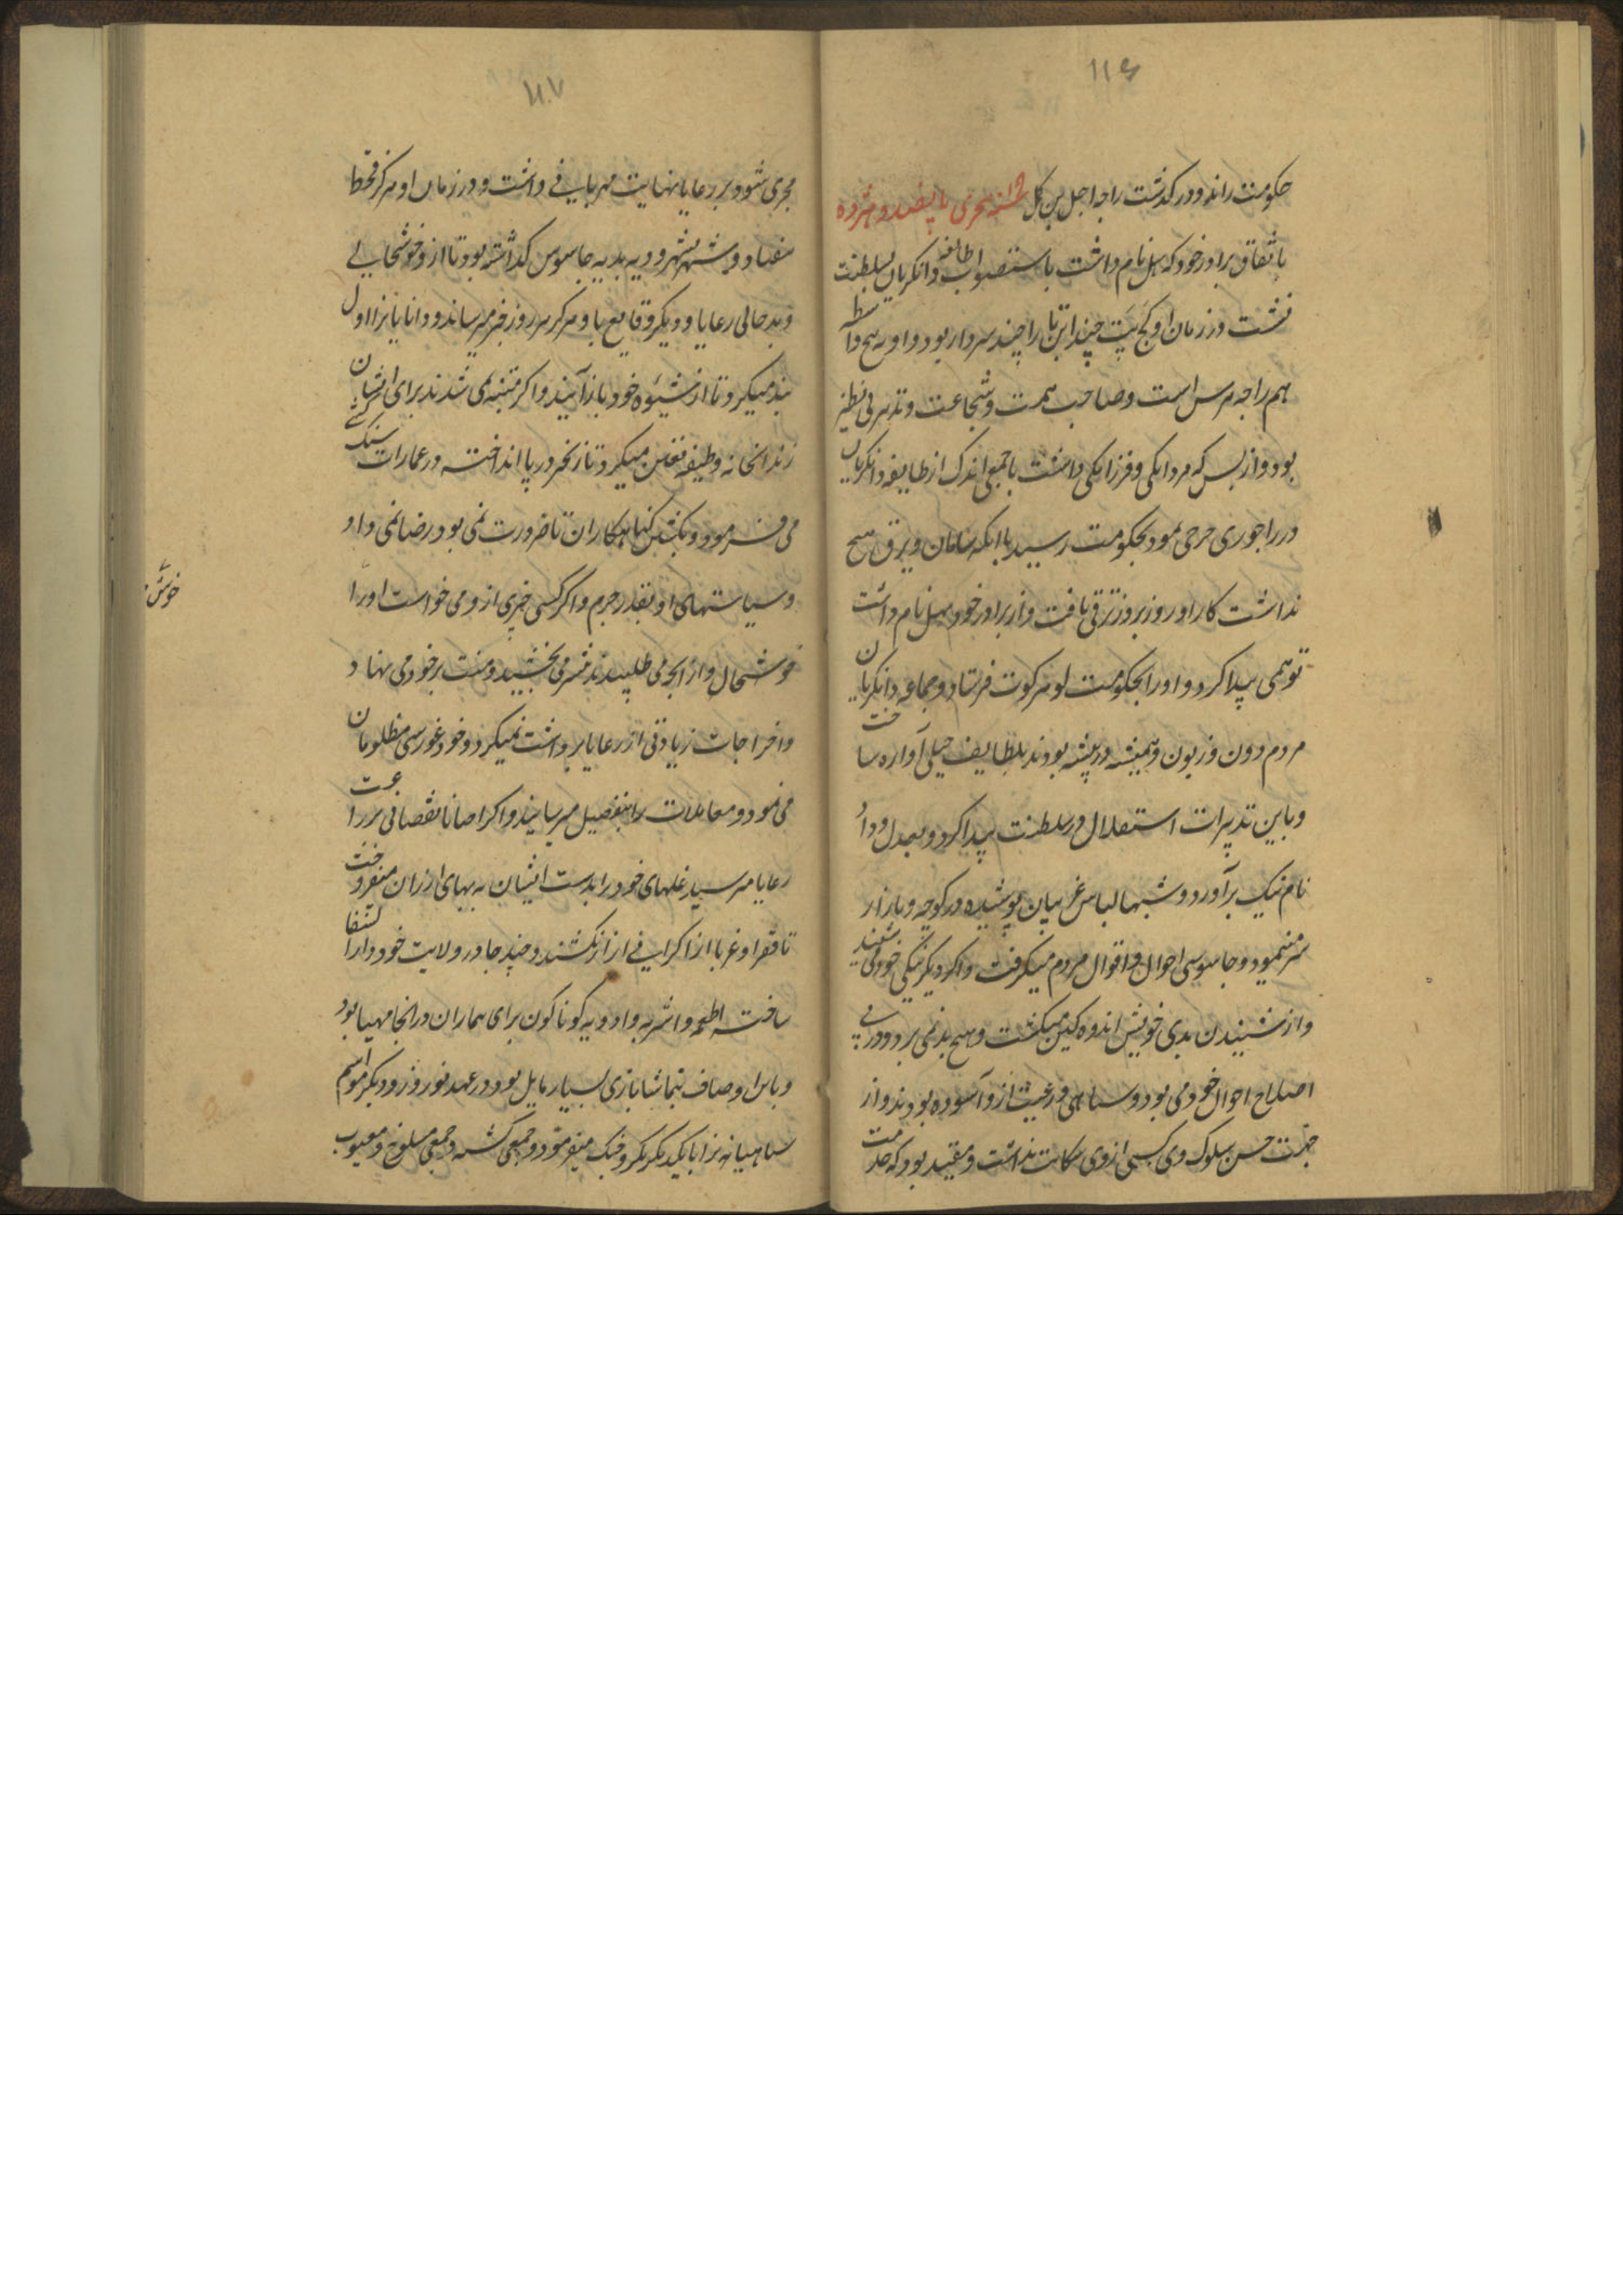 ۱۱۶
حکومت رانده درگذشت راجه اجل بن کل در سنه هجری پانصد و هژده
باتفاق برادر خود که سهل نام داشت باستصواب طایفه دانکریان بسلطنت
نشست در زمان او کج پت چند ابن تارا چند سردار بود و او به هیچ واسطه
هم راجه سر است و صاحب همت و شجاعت و تدبیر بی نظیر
بود و از بس که مردانکی و فرزانکی داشت با جمعی اندک از طایفه دانکریان
در راجوری خرجی نمود بحکومت رسید با انکه سامان و یرق هیچ
نداشت کار او روز بروز ترقی یافت و از برادر خود سهل نام داشت
توهمی پیدا کرد و او را بحکومت لوهر کوت فرستاد و جماعه دانکریان
مردم دون و زبون و همیشه در پیشه بودند بلطایف حیلی آواره ساخت
و باین تدبیرات استقلال در سلطنت پیدا کرد و بعدل و داد
نام نیک برآورد و شبها لباس غریبان پوشیده در کوچه و بازار
سر میمود و جاسوسی احوال و اقوال مردم میکرفت و اکر دیکر نیکی خود می شنید
و از شنیدن بدی خویش اندوه کین نمیکشت و هیچ بد نمی برد و در پی
اصلاح احوال خود می بود و سپاهی و رعیت از و آسوده بودند و از
جهت حسن سلوک وی کسی از وی شکایت نداشت و مقید بود که خدمت
۱۱۷
مجری شود بر رعایا نهایت مهربانی داشت و در زمان او هرکز قحط
نیفتاد و شهر بشهر و دیه بدیه جاسوس کداشته بود تا از و خوشحالی
و بد حالی رعایا و دیکر وقایع با و هرکز هر روز خبر میرساند و دانایانرا اول
بند میکرد تا از شیوه خود باز آیند و اکر متنبه نمی شدند برای ایشان
زندانخانه وظیفه تعین میکرد تا زنجیر در پا انداخته در عمارات سنک کشی
می فرمود و بکشتن کناهکاران تا ضرورت نمی بود رضا نمی داد
و سیاستهای او بقدر جرم و اکر کسی چیزی از و می خواست او را
خوشحال و از انچه می طلبیدند بیشتر می بخشید و منت بر خود می نهاد
و اخراجات زیادتی از رعایا برداشت نمیکرد و خود غوررسی مظلومان
می نمود و معاملات را بتفصیل میرسانید و اکر احیانا نقصانی بزراعت
رعایا میرسید غلهای خود را بدست ایشان به بهای ارزان میفروخت
تا فقرا و غربا از اکرانی از ار نکشند و چند جا در ولایت خود دارالشفا
ساخته اطعمه و اشربه و ادویه کوناکون برای بیماران در انجا مهیا بود
و با این اوصاف بتماشا بازی بسیار مایل بود و در عهد نوروز و دیکر مواسم
سپاهیانه را با یکدیکر بکر و جنک میفرمود و جمعی کشته و جمعی مسلوخ و معیوب
خوش